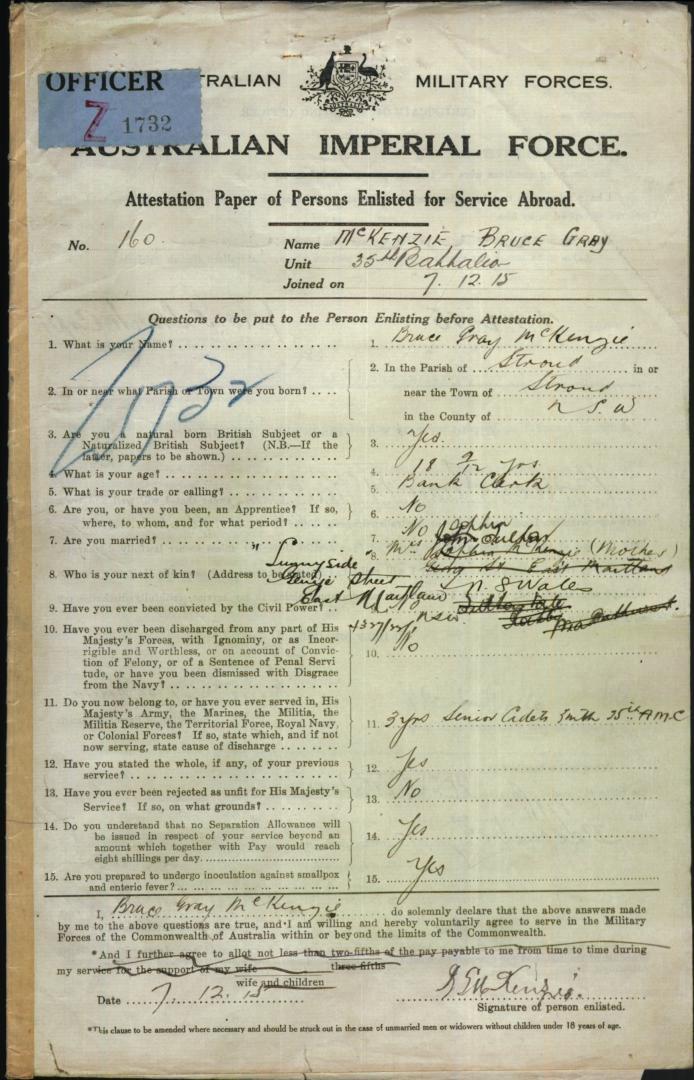 OFFICER
Z 1732
TRALIAN MILITARY FORCES.
AUSTRALIAN IMPERIAL FORCE.
Attestation Paper of Persons Enlisted for Service Abroad.
No. 160. Name McKENZIE, BRUCE GRAY
Unit 35th Battalion
Joined on 7. 12. 15
Questions to be put to the Person Enlisting before Attestation.
1. What is your Name? 1. Bruce Gray McKenzie
2. In or near what Parish or Town were you born? 2. In the Parish of Stroud in or
near the Town of Stroud
in the County of N S W
Z 1732
3. Are you a natural born British Subject or a
Naturalized British Subject? (N.B.—If the
latter, papers to be shown.) 3. Yes.
4. What is your age? 4. 18 9/12 yrs
5. What is your trade or calling? 5. Bank Clerk
6. Are you, or have you been, an Apprentice? If so,
where, to whom, and for what period? 6. No
7. Are you married? 7. No
8. Who is your next of kin? (Address to be stated) 8. Mrs McKenzie (Mother)
East Maitland
"Sunnyside
George Street
East Maitland N. S Wales
NSW
9. Have you ever been convicted by the Civil Power?
10. Have you ever been discharged from any part of His
Majesty's Forces, with Ignominy, or as Incor-
rigible and Worthless, or on account of Convic-
tion of Felony, or of a Sentence of Penal Servi-
tude, or have you been dismissed with Disgrace
from the Navy? 10. No
11. Do you now belong to, or have you ever served in, His
Majesty's Army, the Marines, the Militia, the
Militia Reserve, the Territorial Force, Royal Navy,
or Colonial Forces? If so, state which, and if not
now serving, state cause of discharge 11. 3 yrs Senior Cadets 5 mth 25th A.M.C
12. Have you stated the whole, if any, of your previous
service? 12. Yes
13. Have you ever been rejected as unfit for His Majesty's
Service? If so, on what grounds? 13. No
14. Do you understand that no Separation Allowance will
be issued in respect of your service beyond an
amount which together with Pay would reach
eight shillings per day. 14. Yes
15. Are you prepared to undergo inoculation against smallpox
and enteric fever? 15. Yes
I, Bruce Gray McKenzie do solemnly declare that the above answers made
by me to the above questions are true, and I am willing and hereby voluntarily agree to serve in the Military
Forces of the Commonwealth of Australia within or beyond the limits of the Commonwealth.
*And I further agree to allot not less than two-fifths of the pay payable to me from time to time during
three-fifths
my service for the support of my wife
wife and children
Date 7. 12. 15 B G McKenzie.
Signature of person enlisted.
*This clause to be amended where necessary and should be struck out in the case of unmarried men or widowers without children under 18 years of age.